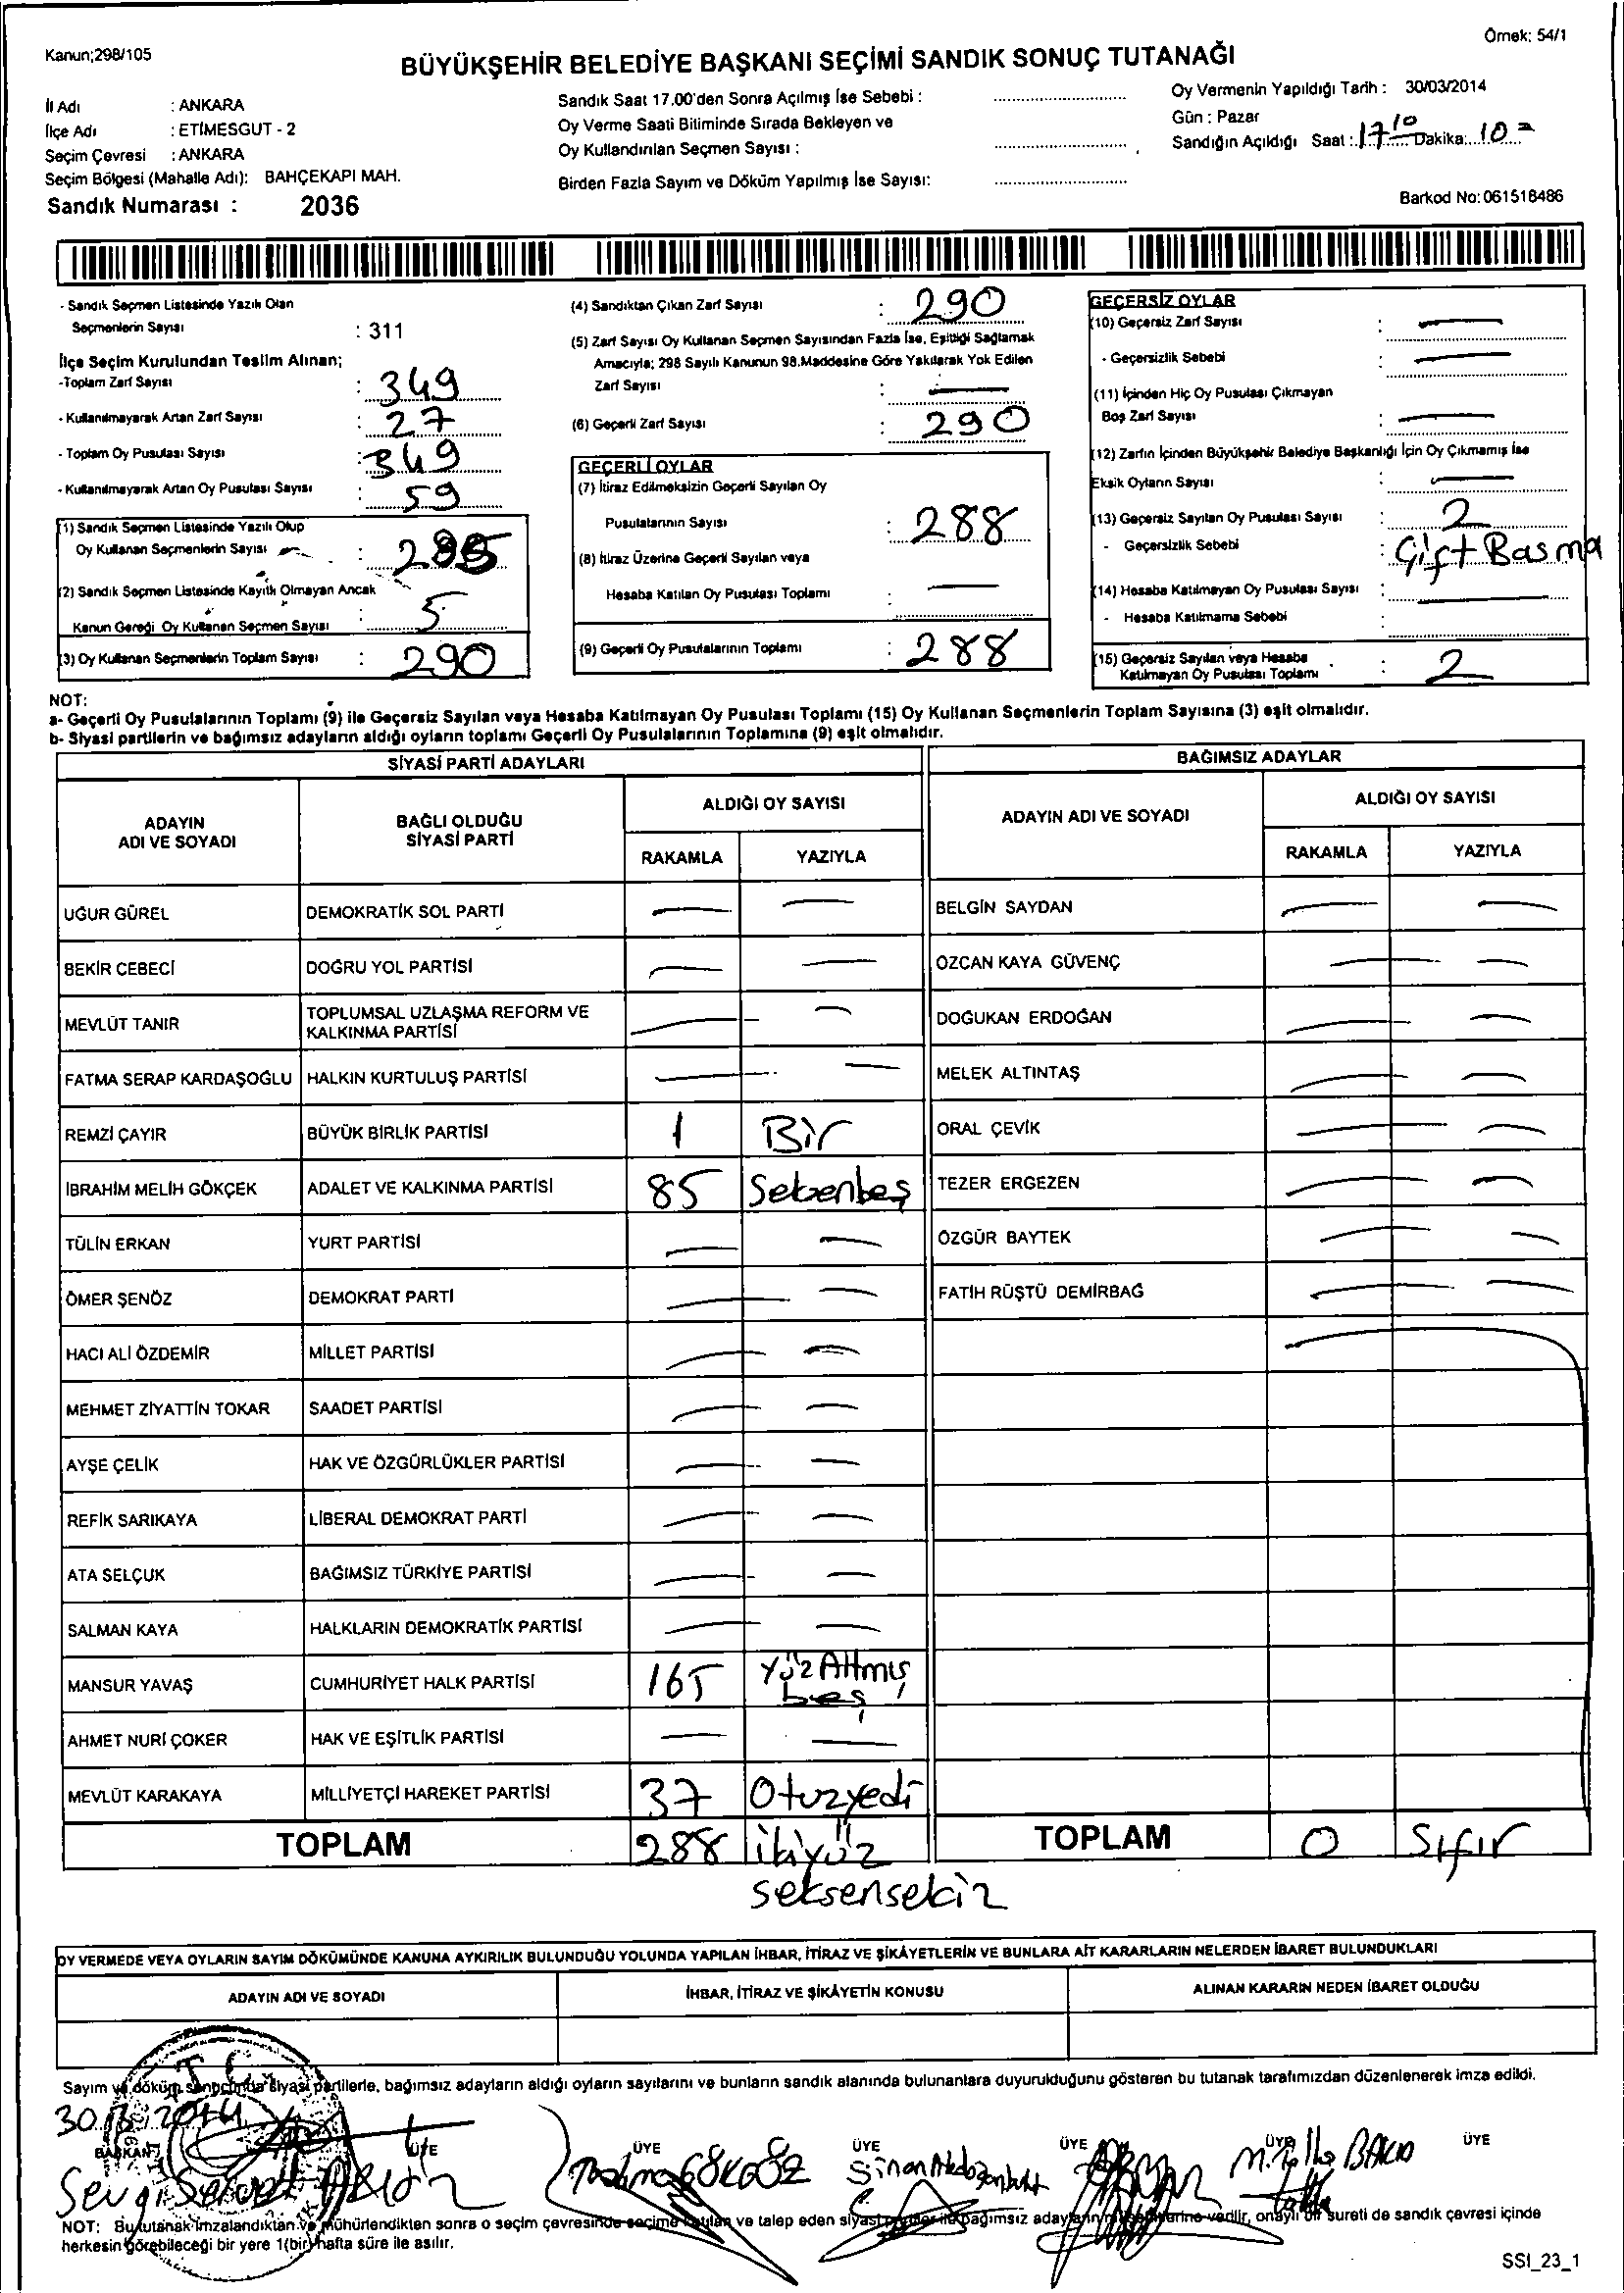 Kanun;298/105
Örnek: 54/1
BÜYÜKŞEHİR BELEDİYE BAŞKANI SEÇİMİ SANDIK SONUÇ TUTANAĞI
İl Adı : ANKARA
İlçe Adı : ETİMESGUT - 2
Seçim Çevresi : ANKARA
Seçim Bölgesi (Mahalle Adı): BAHÇEKAPI MAH.
Sandık Numarası : 2036
Sandık Saat 17.00'den Sonra Açılmış İse Sebebi :
Oy Verme Saati Bitiminde Sırada Bekleyen ve
Oy Kullandırılan Seçmen Sayısı :
Birden Fazla Sayım ve Döküm Yapılmış İse Sayısı:
Oy Vermenin Yapıldığı Tarih : 30/03/2014
Gün : Pazar
Sandığın Açıldığı Saat : 17 10 Dakika: 10
Barkod No: 061518486
- Sandık Seçmen Listesinde Yazılı Olan
Seçmenlerin Sayısı : 311
İlçe Seçim Kurulundan Teslim Alınan;
-Toplam Zarf Sayısı : 349
- Kullanılmayarak Artan Zarf Sayısı : 27
- Toplam Oy Pusulası Sayısı : 349
- Kullanılmayarak Artan Oy Pusulası Sayısı : 59
(1) Sandık Seçmen Listesinde Yazılı Olup
Oy Kullanan Seçmenlerin Sayısı : 285
(2) Sandık Seçmen Listesinde Kayıtlı Olmayan Ancak
Kanun Gereği Oy Kullanan Seçmen Sayısı : 5
(3) Oy Kullanan Seçmenlerin Toplam Sayısı : 290
(4) Sandıktan Çıkan Zarf Sayısı : 290
(5) Zarf Sayısı Oy Kullanan Seçmen Sayısından Fazla İse, Eşitliği Sağlamak
Amacıyla; 298 Sayılı Kanunun 98.Maddesine Göre Yakılarak Yok Edilen
Zarf Sayısı : —
(6) Geçerli Zarf Sayısı : 290
GEÇERLİ OYLAR
(7) İtiraz Edilmeksizin Geçerli Sayılan Oy
Pusulalarının Sayısı : 288
(8) İtiraz Üzerine Geçerli Sayılan veya
Hesaba Katılan Oy Pusulası Toplamı : —
(9) Geçerli Oy Pusulalarının Toplamı : 288
GEÇERSİZ OYLAR
(10) Geçersiz Zarf Sayısı : —
- Geçersizlik Sebebi : —
(11) İçinden Hiç Oy Pusulası Çıkmayan
Boş Zarf Sayısı : —
(12) Zarfın İçinden Büyükşehir Belediye Başkanlığı İçin Oy Çıkmamış İse
Eksik Oyların Sayısı : —
(13) Geçersiz Sayılan Oy Pusulası Sayısı : 2
- Geçersizlik Sebebi : Çift Basma
(14) Hesaba Katılmayan Oy Pusulası Sayısı : —
- Hesaba Katılmama Sebebi :
(15) Geçersiz Sayılan veya Hesaba
Katılmayan Oy Pusulası Toplamı : 2
NOT:
a- Geçerli Oy Pusulalarının Toplamı (9) ile Geçersiz Sayılan veya Hesaba Katılmayan Oy Pusulası Toplamı (15) Oy Kullanan Seçmenlerin Toplam Sayısına (3) eşit olmalıdır.
b- Siyasi partilerin ve bağımsız adayların aldığı oyların toplamı Geçerli Oy Pusulalarının Toplamına (9) eşit olmalıdır.
SİYASİ PARTİ ADAYLARI
ADAYIN ADI VE SOYADI
BAĞLI OLDUĞU SİYASİ PARTİ
ALDIĞI OY SAYISI
RAKAMLA YAZIYLA
UĞUR GÜREL DEMOKRATİK SOL PARTİ — —
BEKİR CEBECİ DOĞRU YOL PARTİSİ — —
MEVLÜT TANIR TOPLUMSAL UZLAŞMA REFORM VE KALKINMA PARTİSİ — —
FATMA SERAP KARDAŞOĞLU HALKIN KURTULUŞ PARTİSİ — —
REMZİ ÇAYIR BÜYÜK BİRLİK PARTİSİ 1 Bir
İBRAHİM MELİH GÖKÇEK ADALET VE KALKINMA PARTİSİ 85 Seksenbeş
TÜLİN ERKAN YURT PARTİSİ — —
ÖMER ŞENÖZ DEMOKRAT PARTİ — —
HACI ALİ ÖZDEMİR MİLLET PARTİSİ — —
MEHMET ZİYATTİN TOKAR SAADET PARTİSİ — —
AYŞE ÇELİK HAK VE ÖZGÜRLÜKLER PARTİSİ — —
REFİK SARIKAYA LİBERAL DEMOKRAT PARTİ — —
ATA SELÇUK BAĞIMSIZ TÜRKİYE PARTİSİ — —
SALMAN KAYA HALKLARIN DEMOKRATİK PARTİSİ — —
MANSUR YAVAŞ CUMHURİYET HALK PARTİSİ 165 YüzAltmış beş
AHMET NURİ ÇOKER HAK VE EŞİTLİK PARTİSİ — —
MEVLÜT KARAKAYA MİLLİYETÇİ HAREKET PARTİSİ 37 Otuzyedi
TOPLAM 288 ikiyüz
seksensekiz
BAĞIMSIZ ADAYLAR
ADAYIN ADI VE SOYADI
ALDIĞI OY SAYISI
RAKAMLA YAZIYLA
BELGİN SAYDAN — —
ÖZCAN KAYA GÜVENÇ — —
DOĞUKAN ERDOĞAN — —
MELEK ALTINTAŞ — —
ORAL ÇEVİK — —
TEZER ERGEZEN — —
ÖZGÜR BAYTEK — —
FATİH RÜŞTÜ DEMİRBAĞ — —
TOPLAM 0 Sıfır
OY VERMEDE VEYA OYLARIN SAYIM DÖKÜMÜNDE KANUNA AYKIRILIK BULUNDUĞU YOLUNDA YAPILAN İHBAR, İTİRAZ VE ŞİKÂYETLERİN VE BUNLARA AİT KARARLARIN NELERDEN İBARET BULUNDUKLARI
ADAYIN ADI VE SOYADI İHBAR, İTİRAZ VE ŞİKÂYETİN KONUSU ALINAN KARARIN NEDEN İBARET OLDUĞU
T.C.
Sayım ve döküm sonucunda siyasi partilerle, bağımsız adayların aldığı oyların sayılarını ve bunların sandık alanında bulunanlara duyurulduğunu gösteren bu tutanak tarafımızdan düzenlenerek imza edildi.
30.3.2014
BAŞKAN ÜYE ÜYE ÜYE ÜYE ÜYE ÜYE
Sevgi Sinan BAKIR
NOT: Bu tutanak imzalandıktan ve mühürlendikten sonra o seçim çevresinde seçime katılan ve talep eden siyasi partiler ile bağımsız adayların müşahitlerine verilir, onaylı bir sureti de sandık çevresi içinde
herkesin görebileceği bir yere 1(bir) hafta süre ile asılır.
SSI_23_1